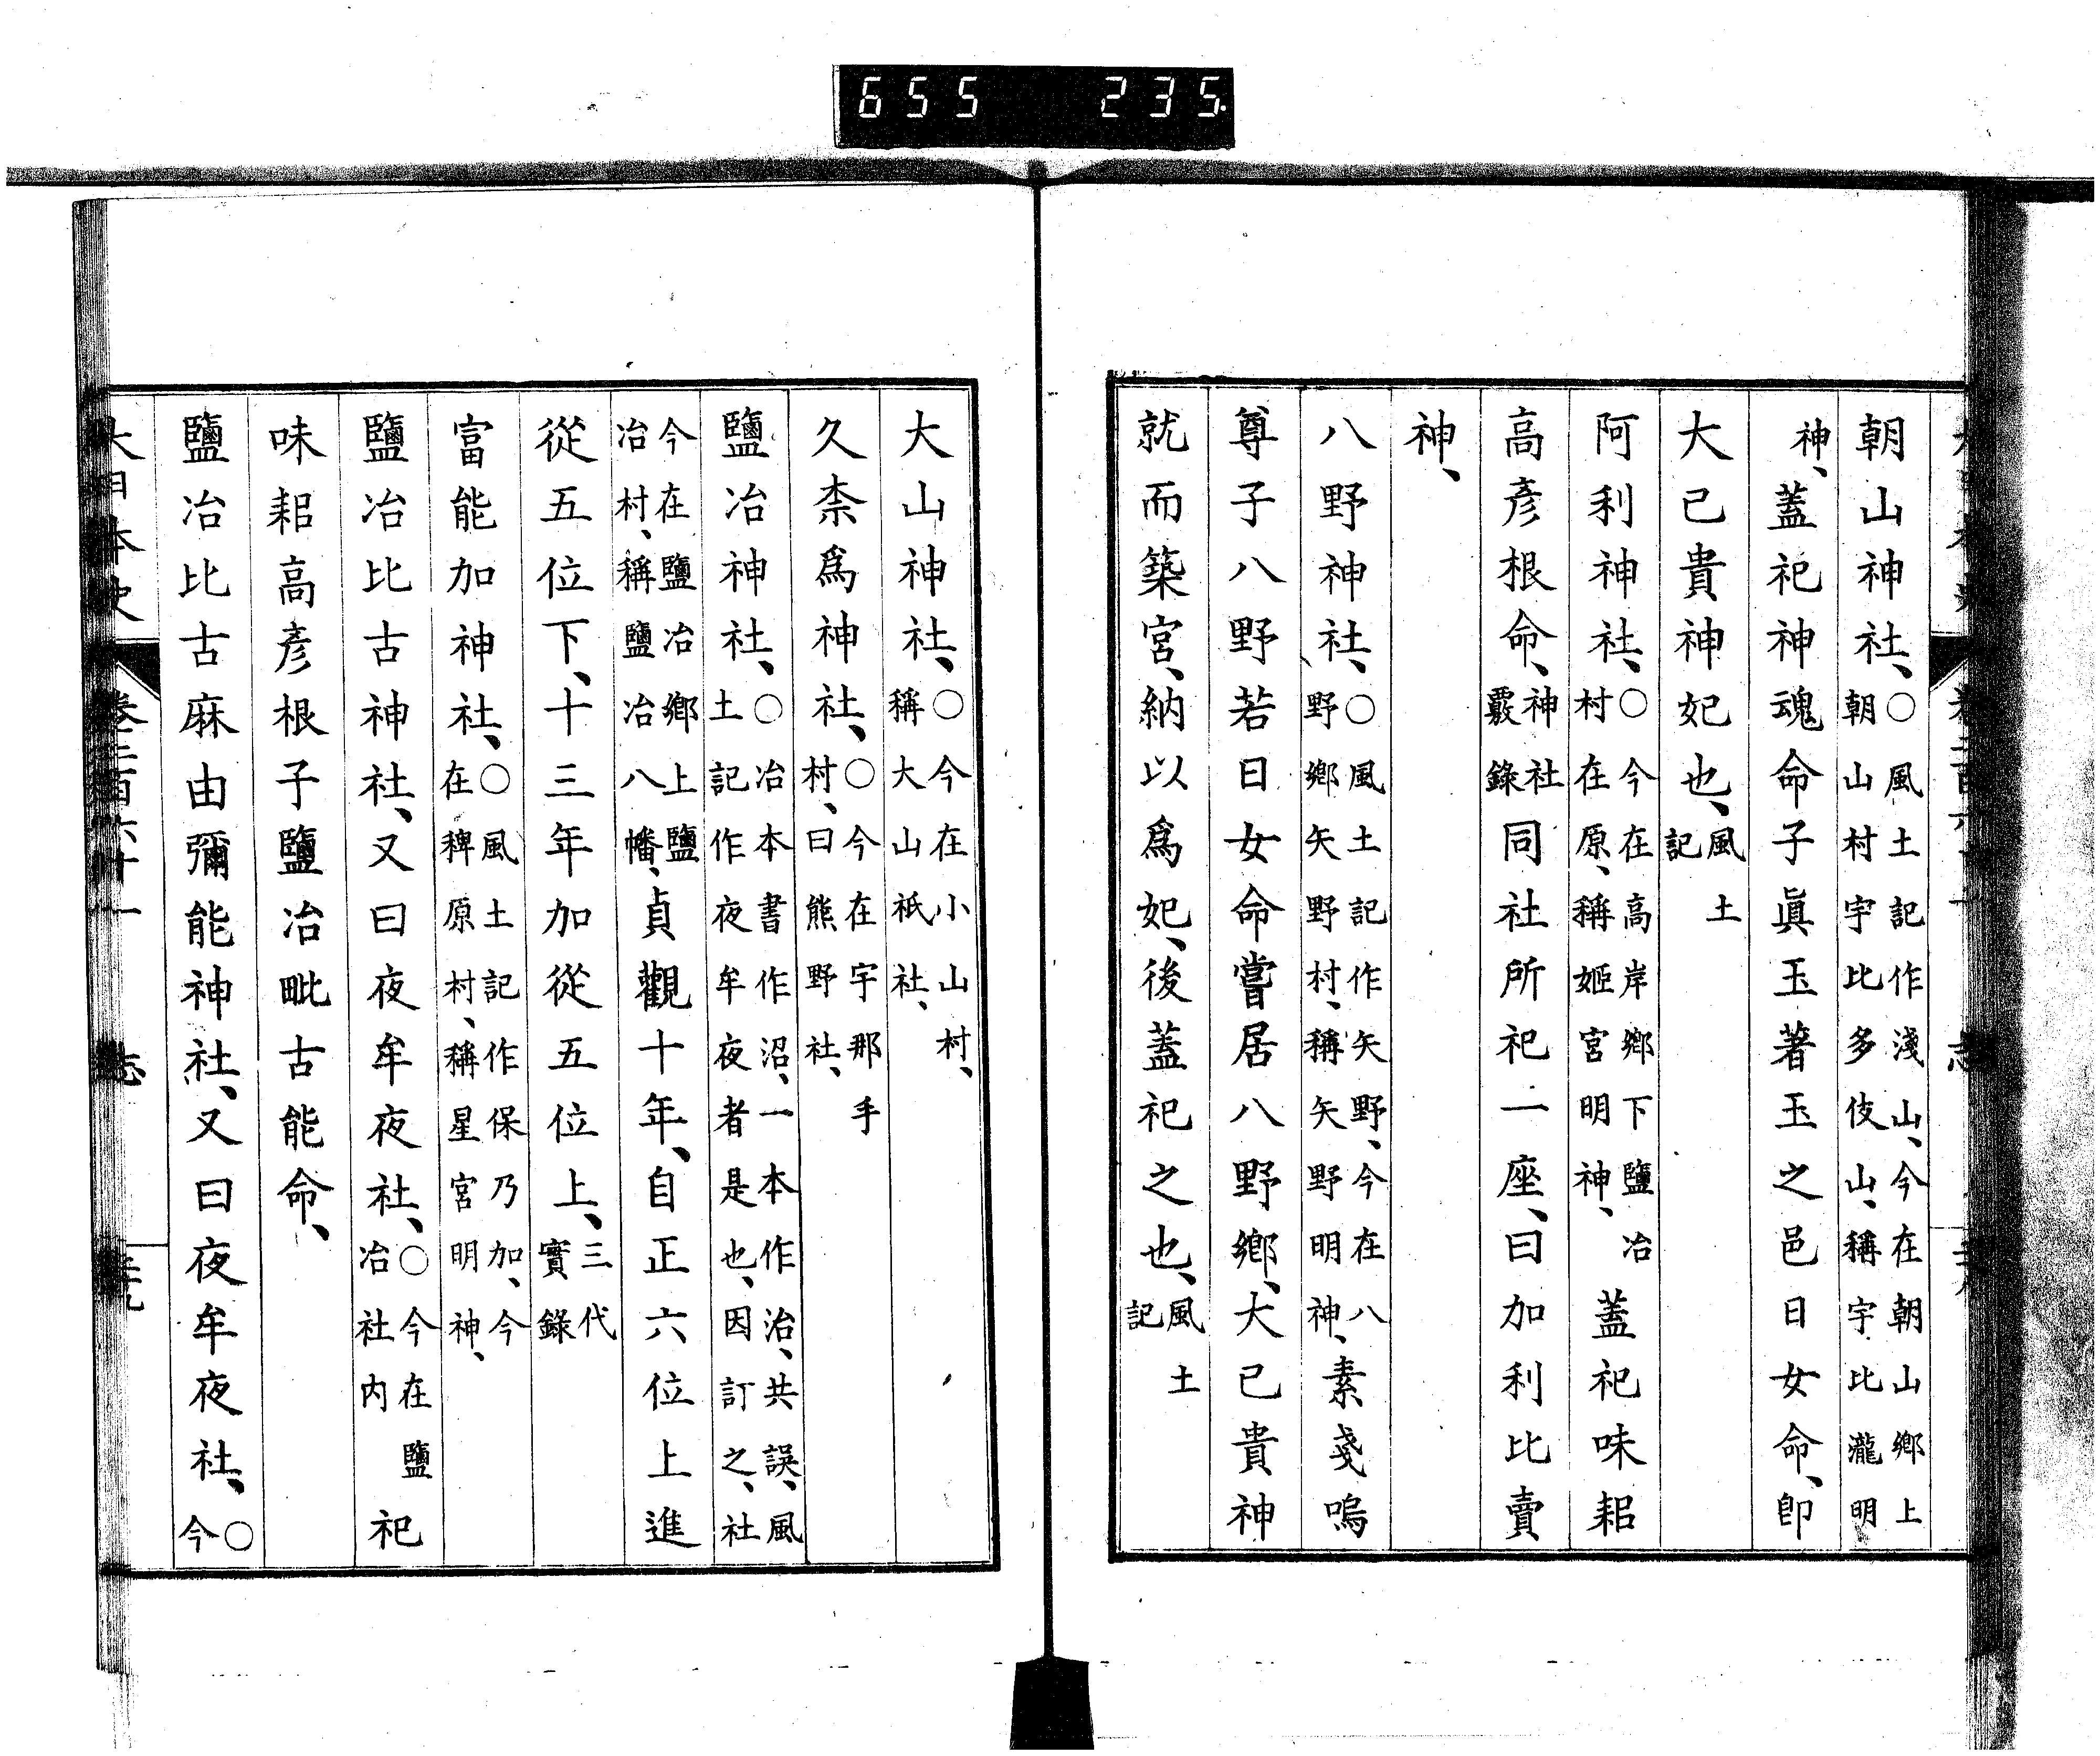 655 235
朝山神社、○風土記作淺山、今在朝山鄉上朝山村宇比多伎山、稱宇比瀧明
神、蓋祀神魂命子眞玉著玉之邑日女命、卽
大己貴神妃也、風土記
阿利神社、○今在高岸鄉下鹽冶村在原、稱姬宮明神、蓋祀味耜
高彥根命、神社覈錄同社所祀一座、曰加利比賣
神、
八野神社、○風土記作矢野、今在八野鄉矢野村、稱矢野明神、素戔嗚
尊子八野若日女命嘗居八野鄉、大己貴神
就而築宮、納以爲妃、後蓋祀之也、風土記
大山神社、○今在小山村、稱大山祇社、
久柰爲神社、○今在宇那手村、曰熊野社、
鹽冶神社、○冶本書作沼、一本作治、共誤、風土記作夜牟夜者是也、因訂之、社
今在鹽冶鄉上鹽冶村、稱鹽冶八幡、貞觀十年、自正六位上進
從五位下、十三年加從五位上、三代實錄
富能加神社、○風土記作保乃加、今在稗原村、稱星宮明神、
鹽冶比古神社、又曰夜牟夜社、○今在鹽冶社内祀
味耜高彥根子鹽冶毗古能命、
鹽冶比古麻由彌能神社、又曰夜牟夜社、○今
大日本史 卷二百六十一 志